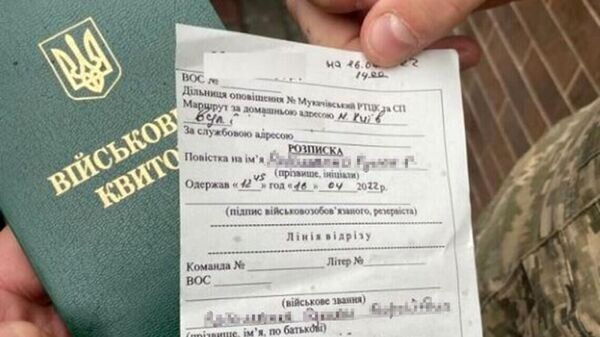 ВІЙСЬКОВ
КВИТО
на 16.0 22
14:00
ВОС №
Дільниця оповіщення № Мукачівський РТЦК та СП
Маршрут за домашньою адресою м. Київ
За службовою адресою
РОЗПИСКА
Повістка на ім'я
(прізвище, ініціали)
Одержав « 12 45 » год « 16 » 04 2022 р.
(підпис військовозобов'язаного, резервіста)
Лінія відрізу
Команда № Літер №
ВОС
(військове звання)
(прізвище, ім'я, по батькові)